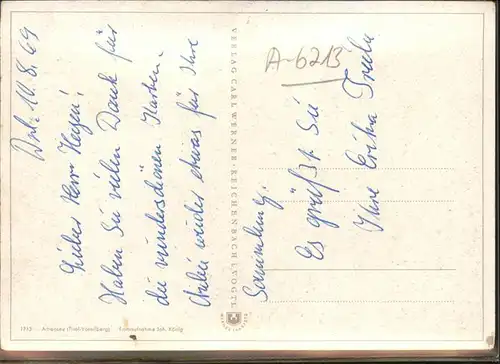 10.8.69
Lieber Herr Heyen!
Haben Sie vielen Dank für
die wunderschönen Karten.
Anbei wieder etwas für Ihre
Sammlung.
Es grüßt Sie
Ihre Erika
A-6213
VERLAG CARL WERNER · REICHENBACH I. VOGTL
1793 Achensee (Tirol-Vorarlberg) Farbaufnahme